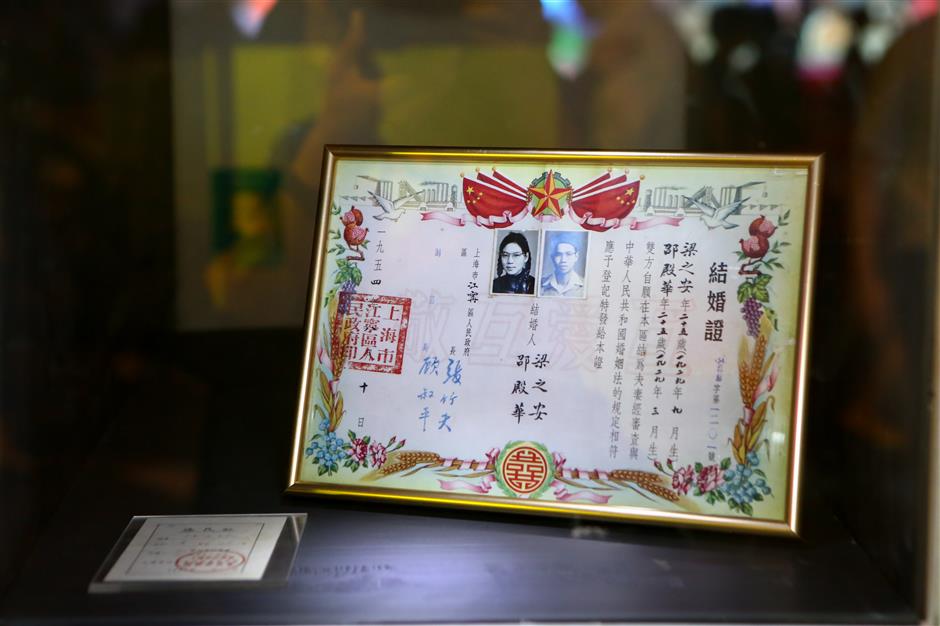 結婚證
字第號
梁之安年二十五歲(一九二九年九月生)
邵殿華年二十五歲(一九二九年三月生)
雙方自願在本區結爲夫妻經審查與
中華人民共和國婚姻法的規定相符
應予登記特發給本證
結婚人
梁之安
邵殿華
上海市江寧區人民政府
區長張竹天
副顧叔平
一九五四十日
上海市
江寧區人
民政府印
囍